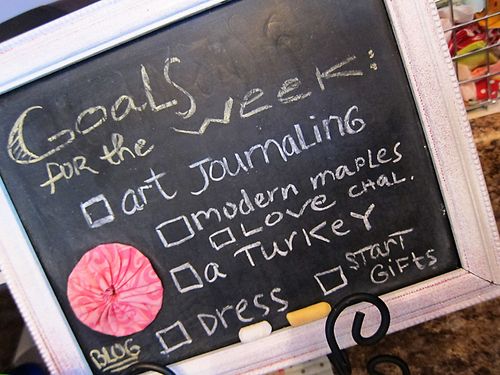 Goals
for the Week:
art Journaling
modern maples
Love chal.
a Turkey
Dress
Start
Gifts
Blog